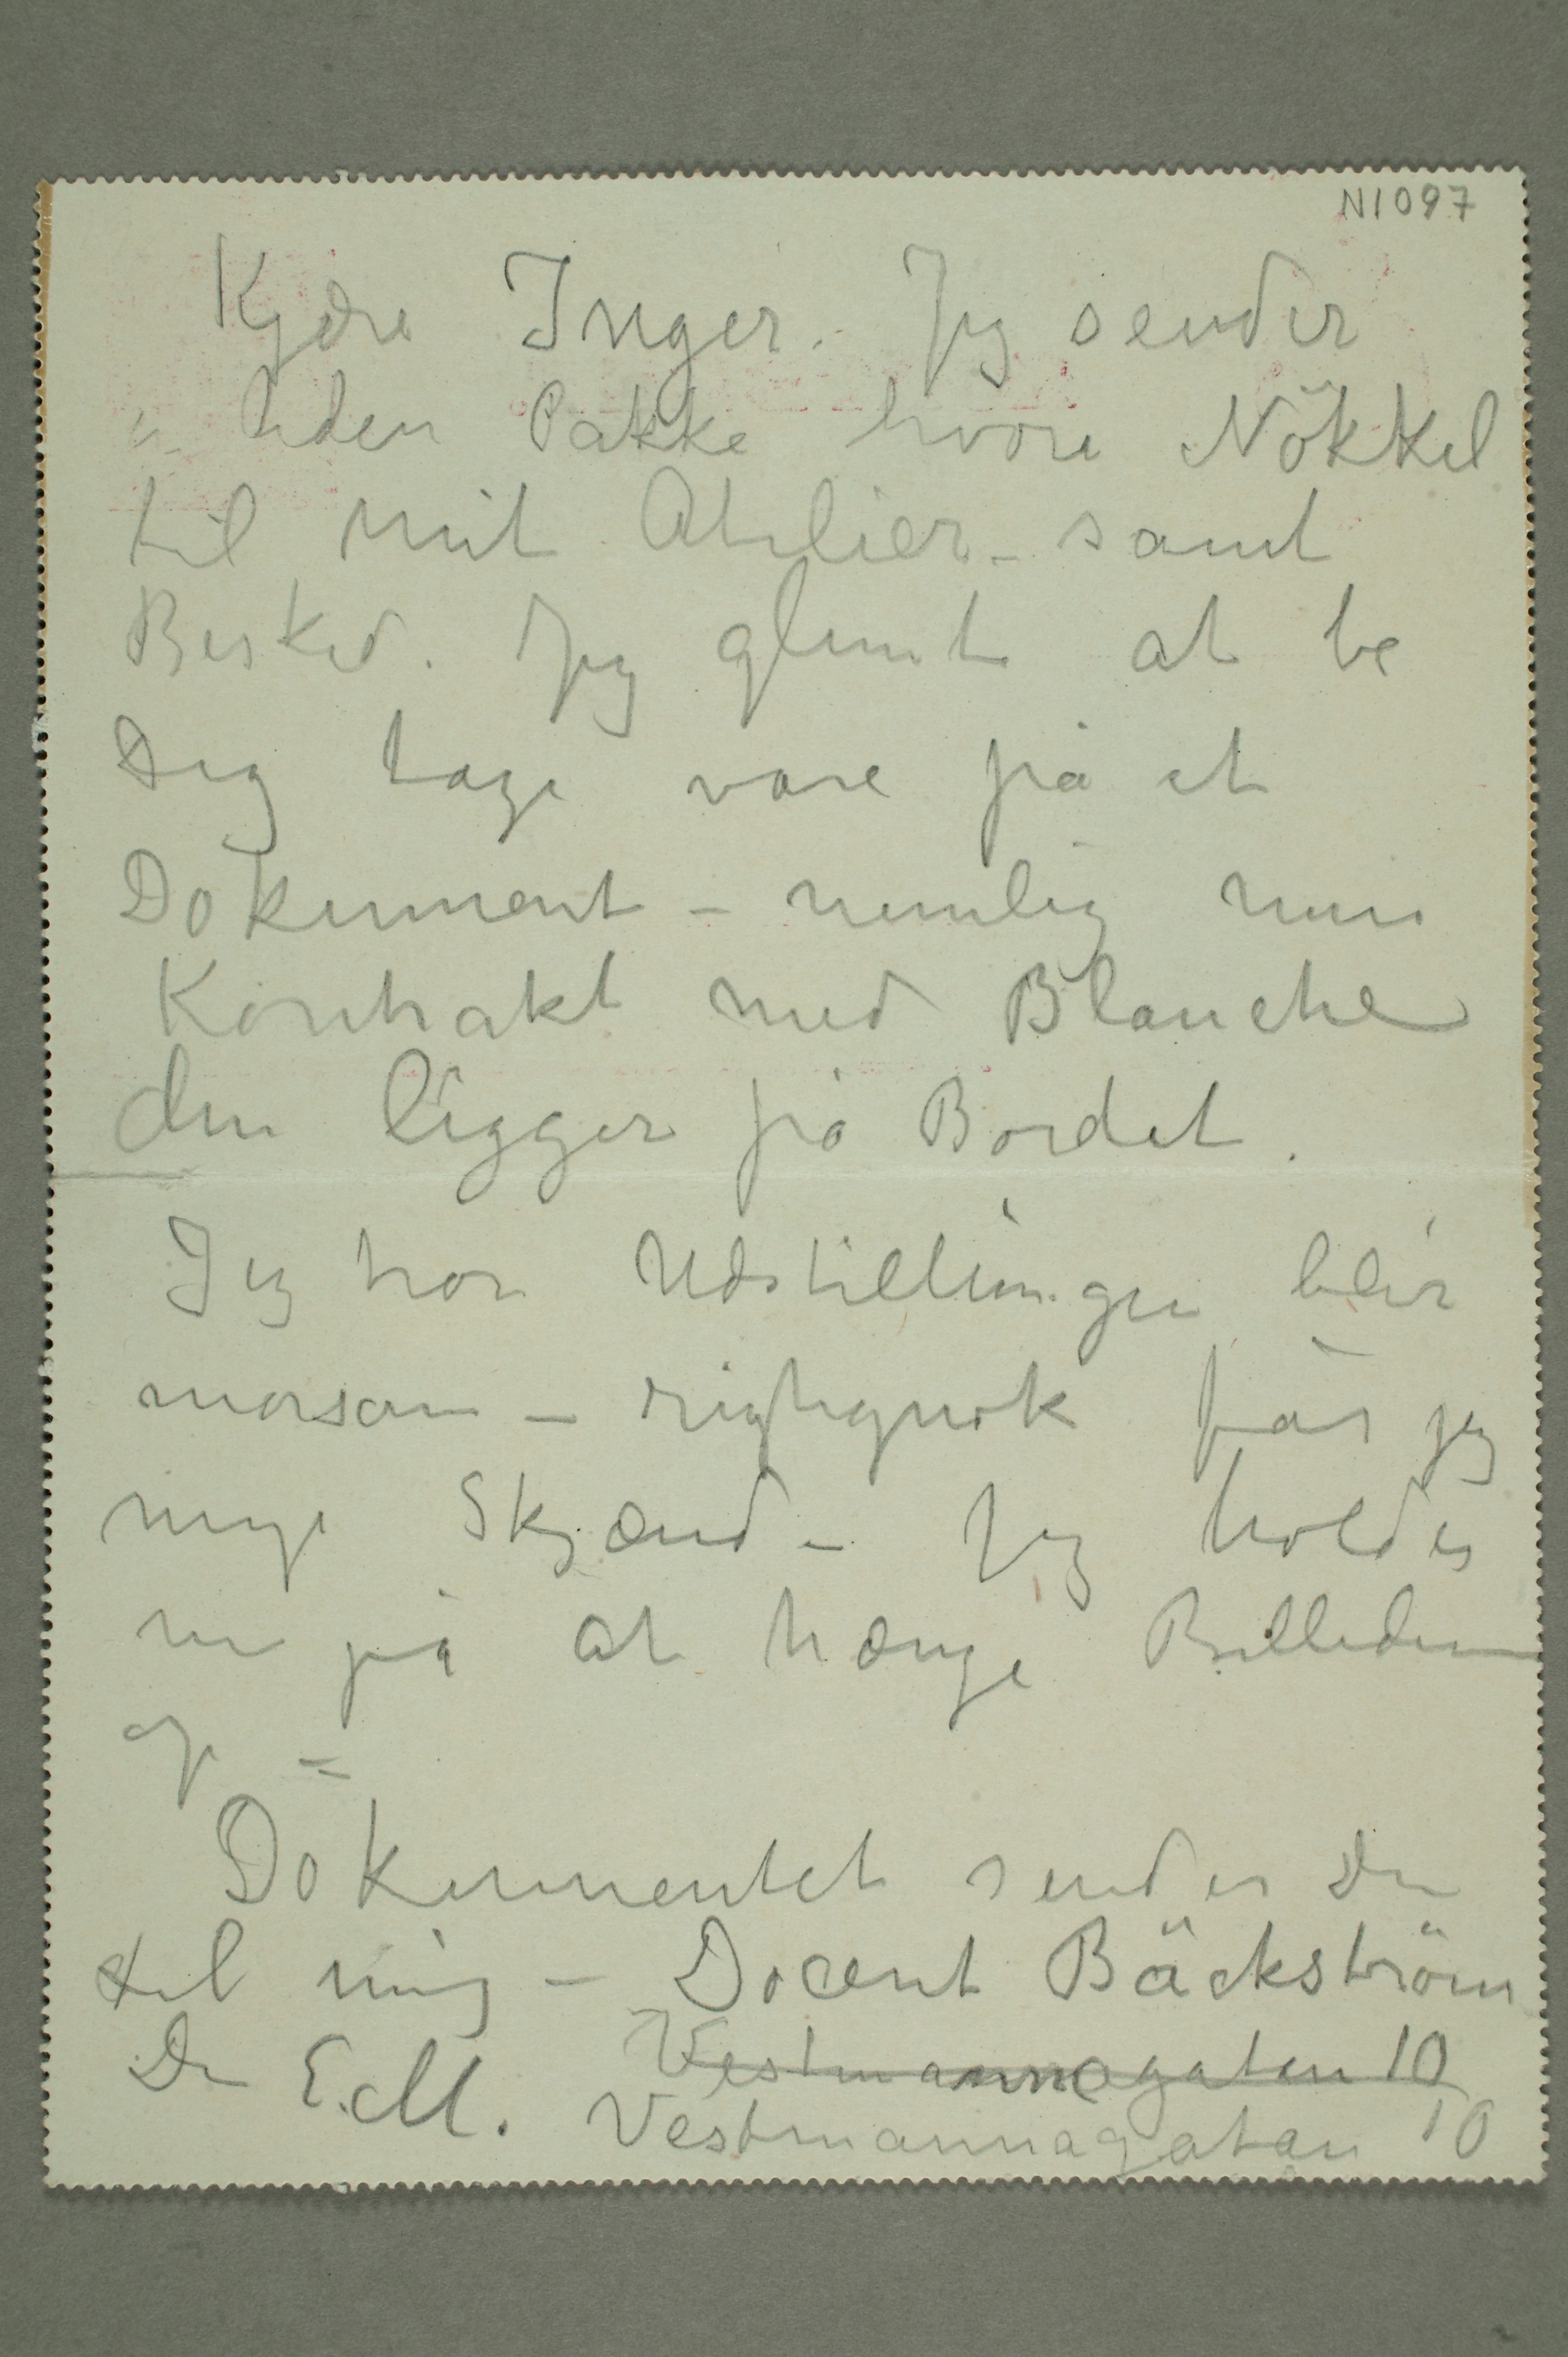 N1097
Kjære Inger. Jeg sender
en liden Pakke hvori Nökkel
til mit Atelier – samt
Besked. Jeg glemt at be
Dig tage vare på et
Dokument – nemlig min
Kontrakt med Blanche
den ligger på Bordet.
Jeg tror Udstillingen blir
morsom – rigtignok får jeg
mege Skjænd – Jeg holder
nu på at hænge Billederne
op –
Dokumentet sender Du
til mig – Docent Bäckström
Vestmannagatan 10
Din E.M. Vestmannagatan 10